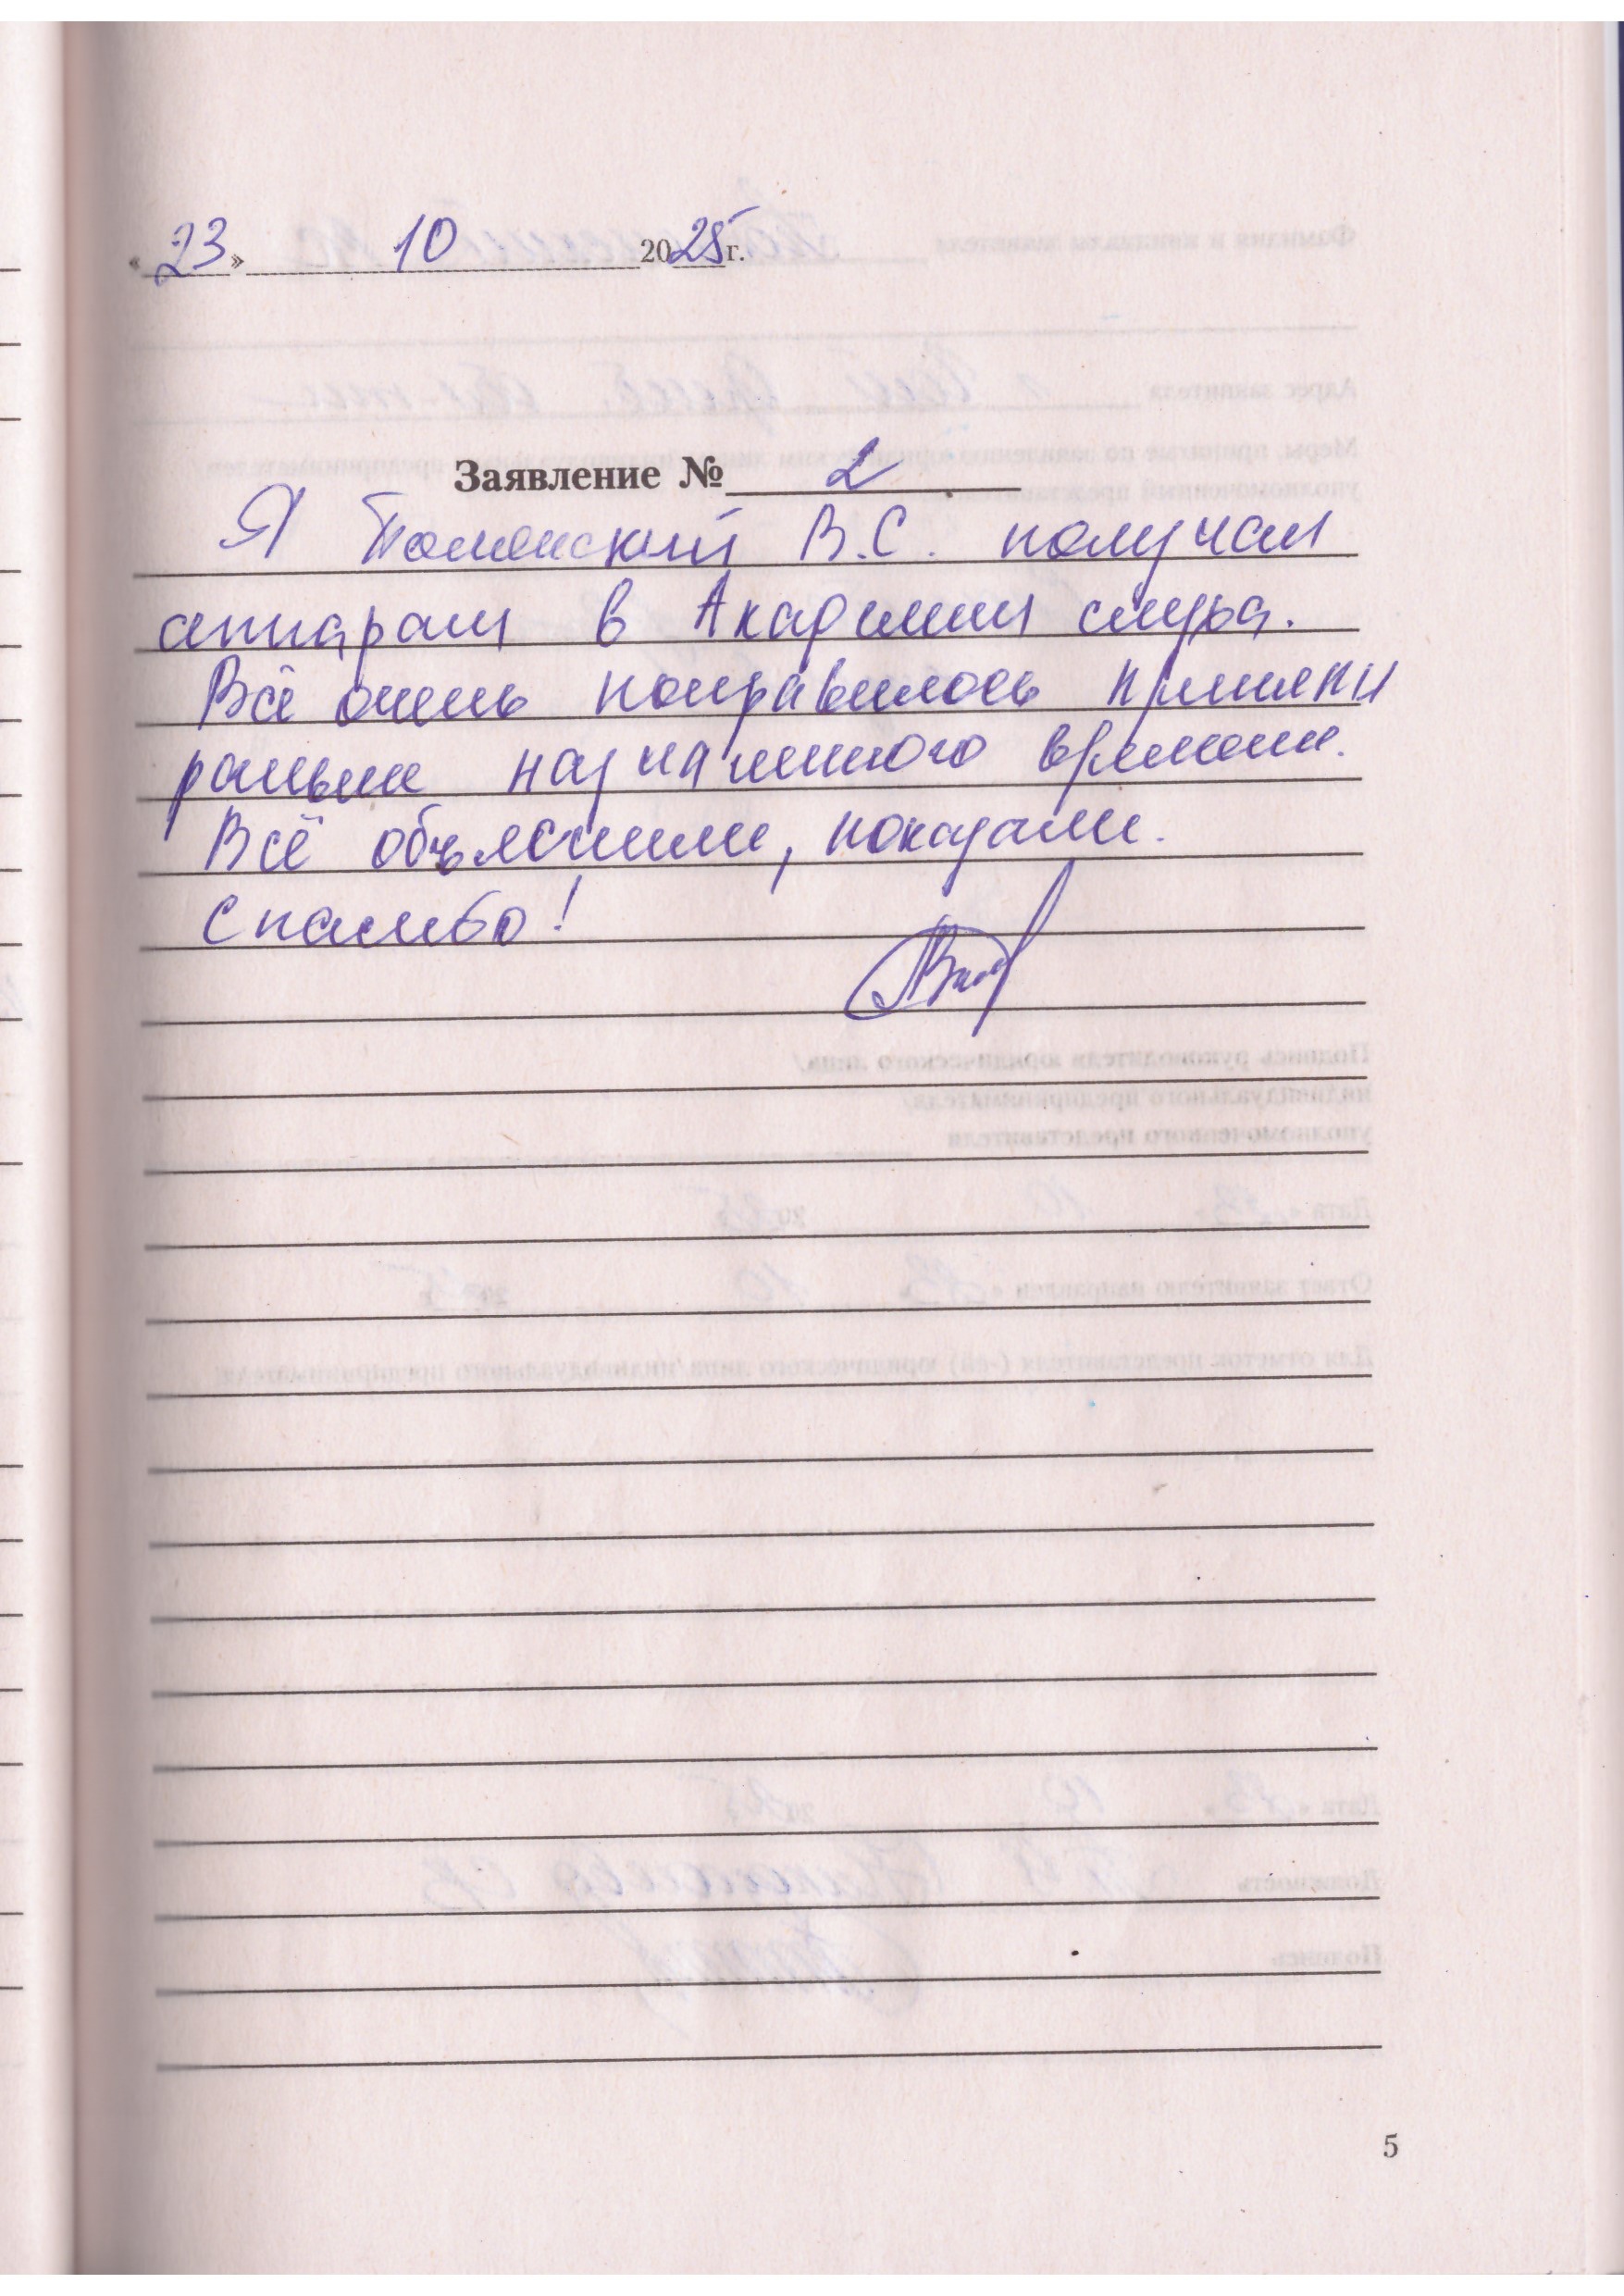 «23» 10 2025 г.
Заявление № 2
Я Томский В.С. получал
аппарат в Академии слуха.
Всё очень понравилось приняли
раньше назначенного времени.
Всё объяснили, показали.
Спасибо!
5